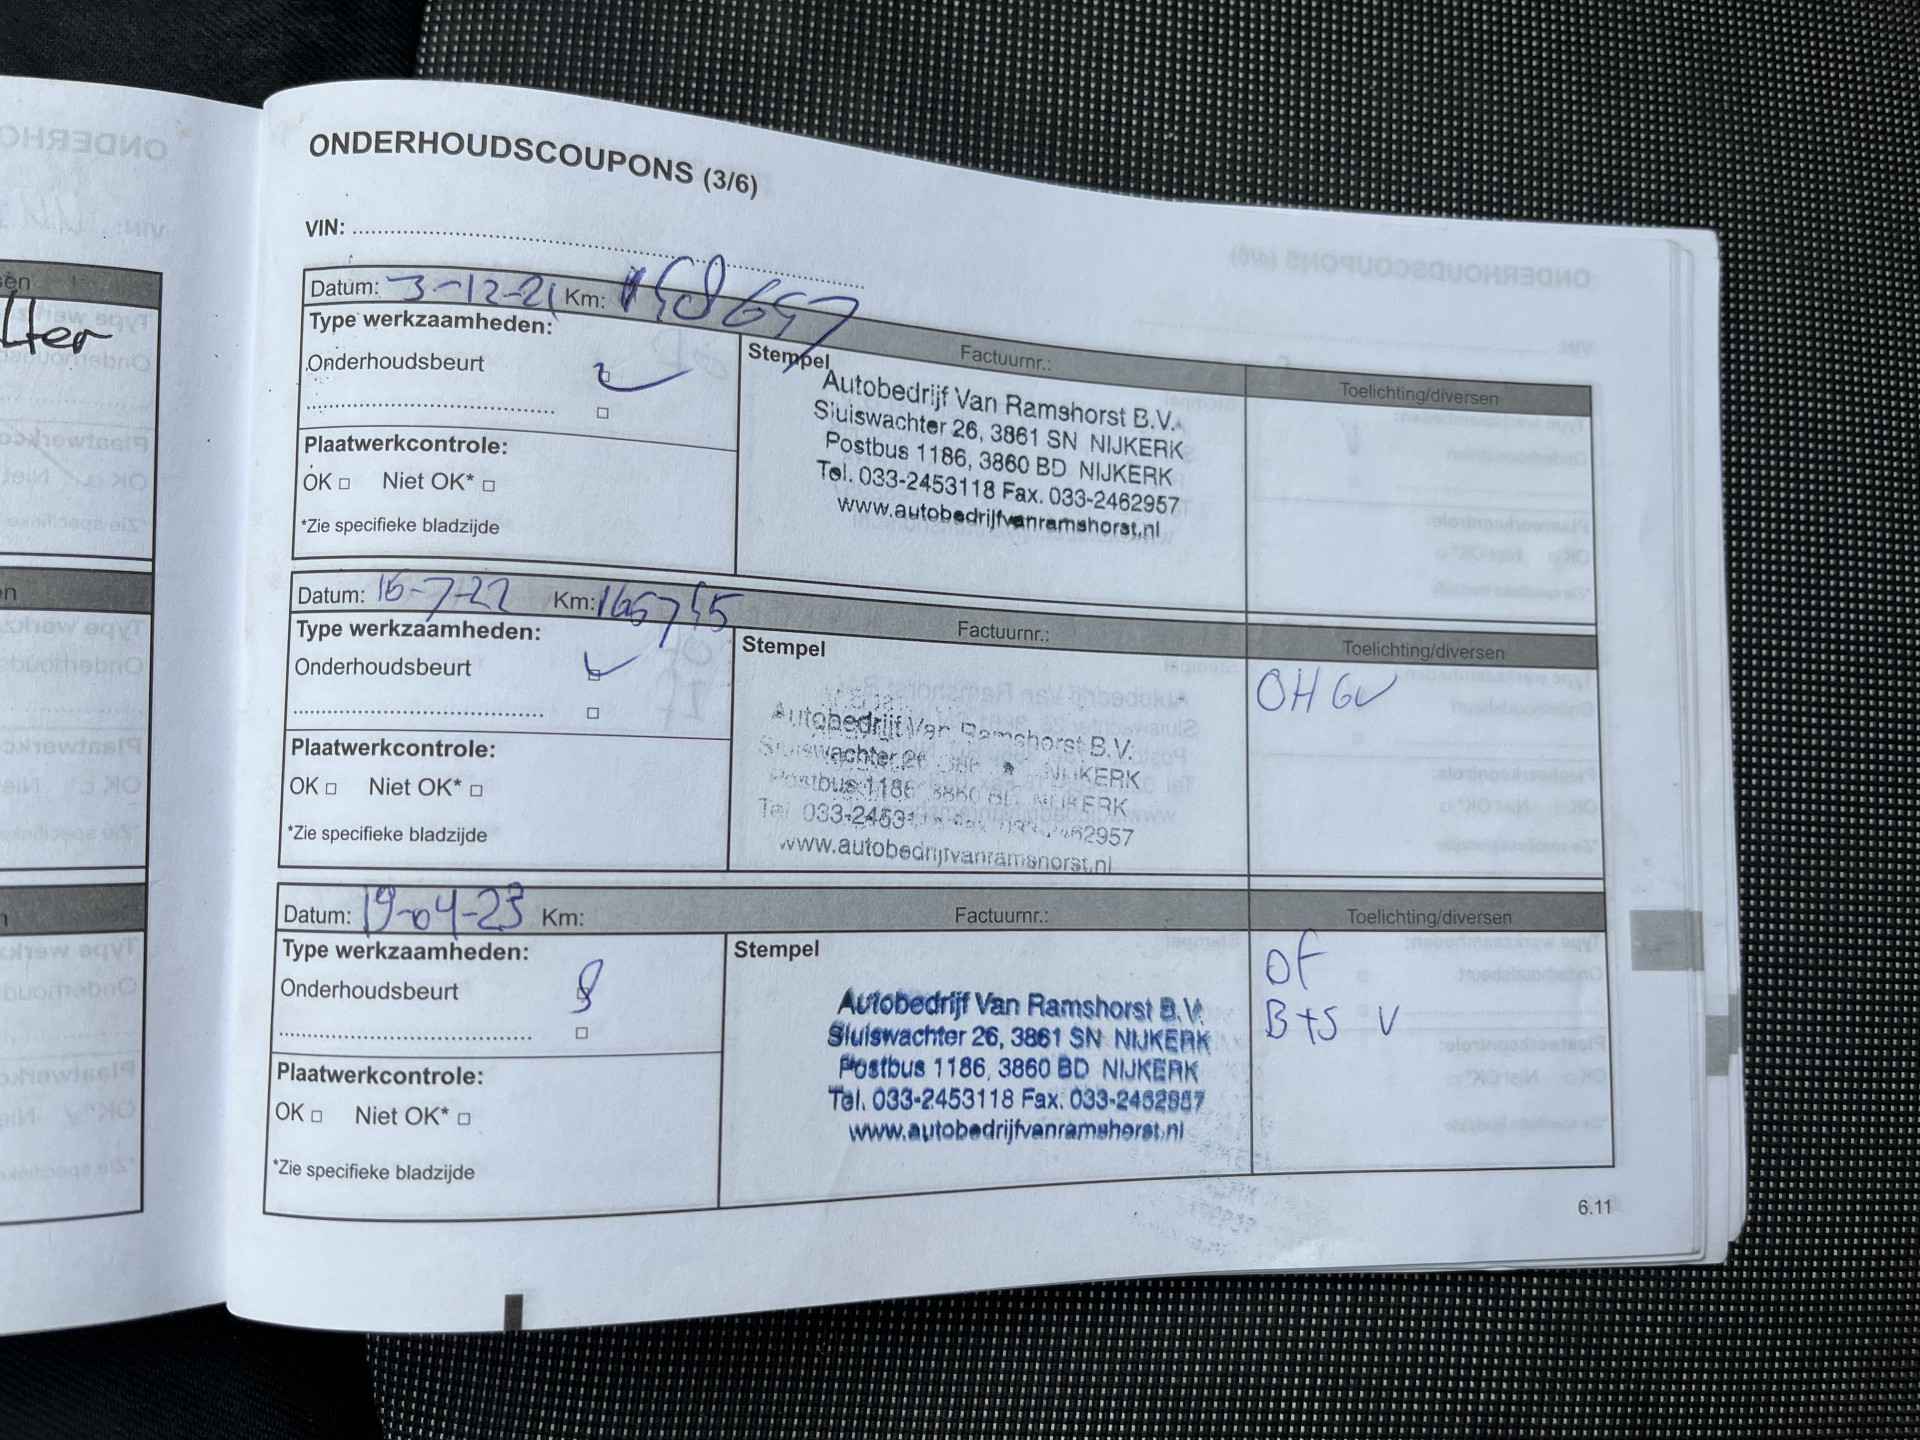 ONDERHOUDSCOUPONS (3/6)
VIN:
Datum: 3-12-21 Km: 158657
Type werkzaamheden:
Onderhoudsbeurt
Plaatwerkcontrole:
OK Niet OK*
*Zie specifieke bladzijde
Stempel Factuurnr.:
Autobedrijf Van Ramshorst B.V.
Sluiswachter 26, 3861 SN NIJKERK
Postbus 1186, 3860 BD NIJKERK
Tel. 033-2453118 Fax. 033-2462957
www.autobedrijfvanramshorst.nl
Toelichting/diversen
Datum: 15-7-22 Km: 165755
Type werkzaamheden:
Onderhoudsbeurt
Plaatwerkcontrole:
OK Niet OK*
*Zie specifieke bladzijde
Factuurnr.:
Stempel
Autobedrijf Van Ramshorst B.V.
Sluiswachter 26 NIJKERK
Postbus 1186, 3860 BD NIJKERK
Tel 033-2453118 Fax 033-2462957
www.autobedrijfvanramshorst.nl
Toelichting/diversen
OH GV
Datum: 19-04-23 Km:
Type werkzaamheden:
Onderhoudsbeurt
Plaatwerkcontrole:
OK Niet OK*
*Zie specifieke bladzijde
Factuurnr.:
Stempel
Autobedrijf Van Ramshorst B.V.
Sluiswachter 26, 3861 SN NIJKERK
Postbus 1186, 3860 BD NIJKERK
Tel. 033-2453118 Fax. 033-2462957
www.autobedrijfvanramshorst.nl
Toelichting/diversen
OF
B+S V
6.11